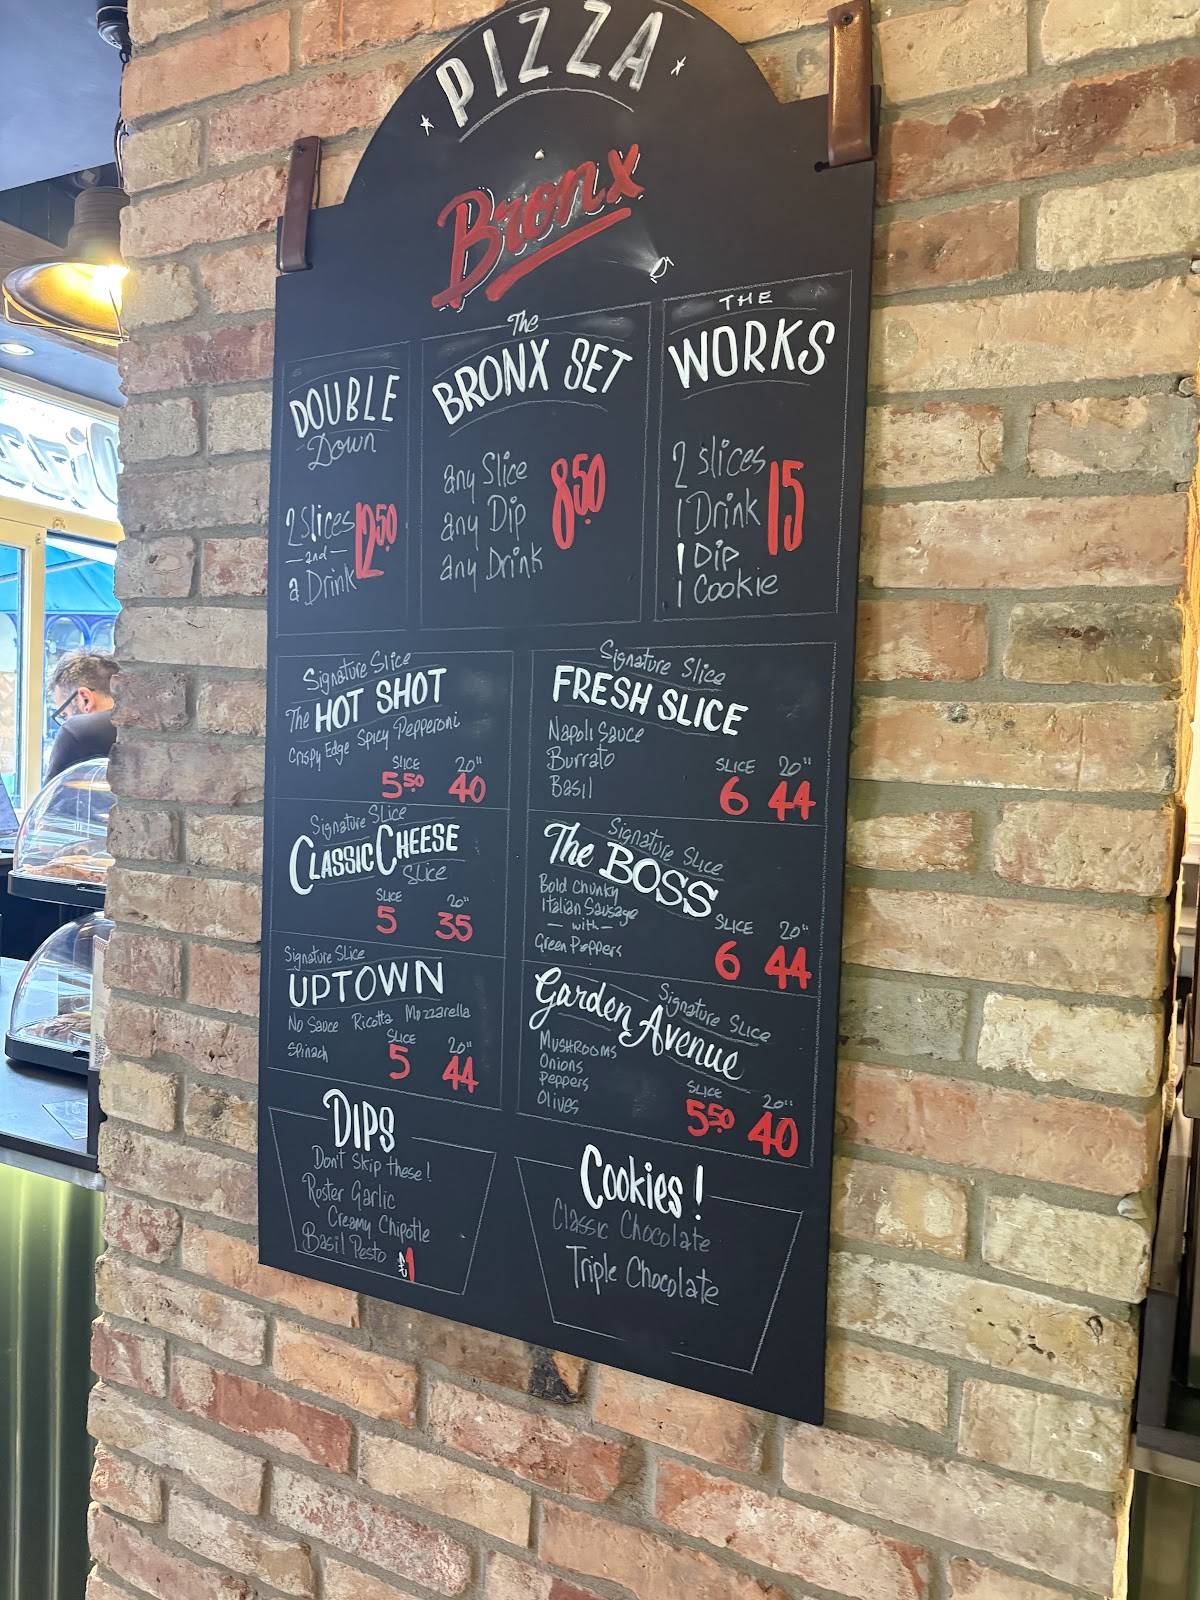 PIZZA
Bronx
DOUBLE
Down
2 Slices
and
a Drink
12.50
The
BRONX SET
any Slice
any Dip
any Drink
8.50
THE
WORKS
2 slices
1 Drink
1 Dip
1 Cookie
15
Signature Slice
The HOT SHOT
Crispy Edge Spicy Pepperoni
SLICE 20"
5.50 40
Signature Slice
CLASSIC CHEESE
SLICE
SLICE 20"
5 35
Signature Slice
UPTOWN
No Sauce Ricotta Mozzarella
Spinach
SLICE 20"
5 44
Signature Slice
FRESH SLICE
Napoli Sauce
Burrato
Basil
SLICE 20"
6 44
Signature Slice
The BOSS
Bold Chunky
Italian Sausage
— with —
Green Peppers
SLICE 20"
6 44
Signature Slice
Garden Avenue
MUSHROOMS
Onions
Peppers
Olives
SLICE 20"
5.50 40
DIPS
Don't Skip these!
Roster Garlic
Creamy Chipotle
Basil Pesto
1
Cookies!
Classic Chocolate
Triple Chocolate